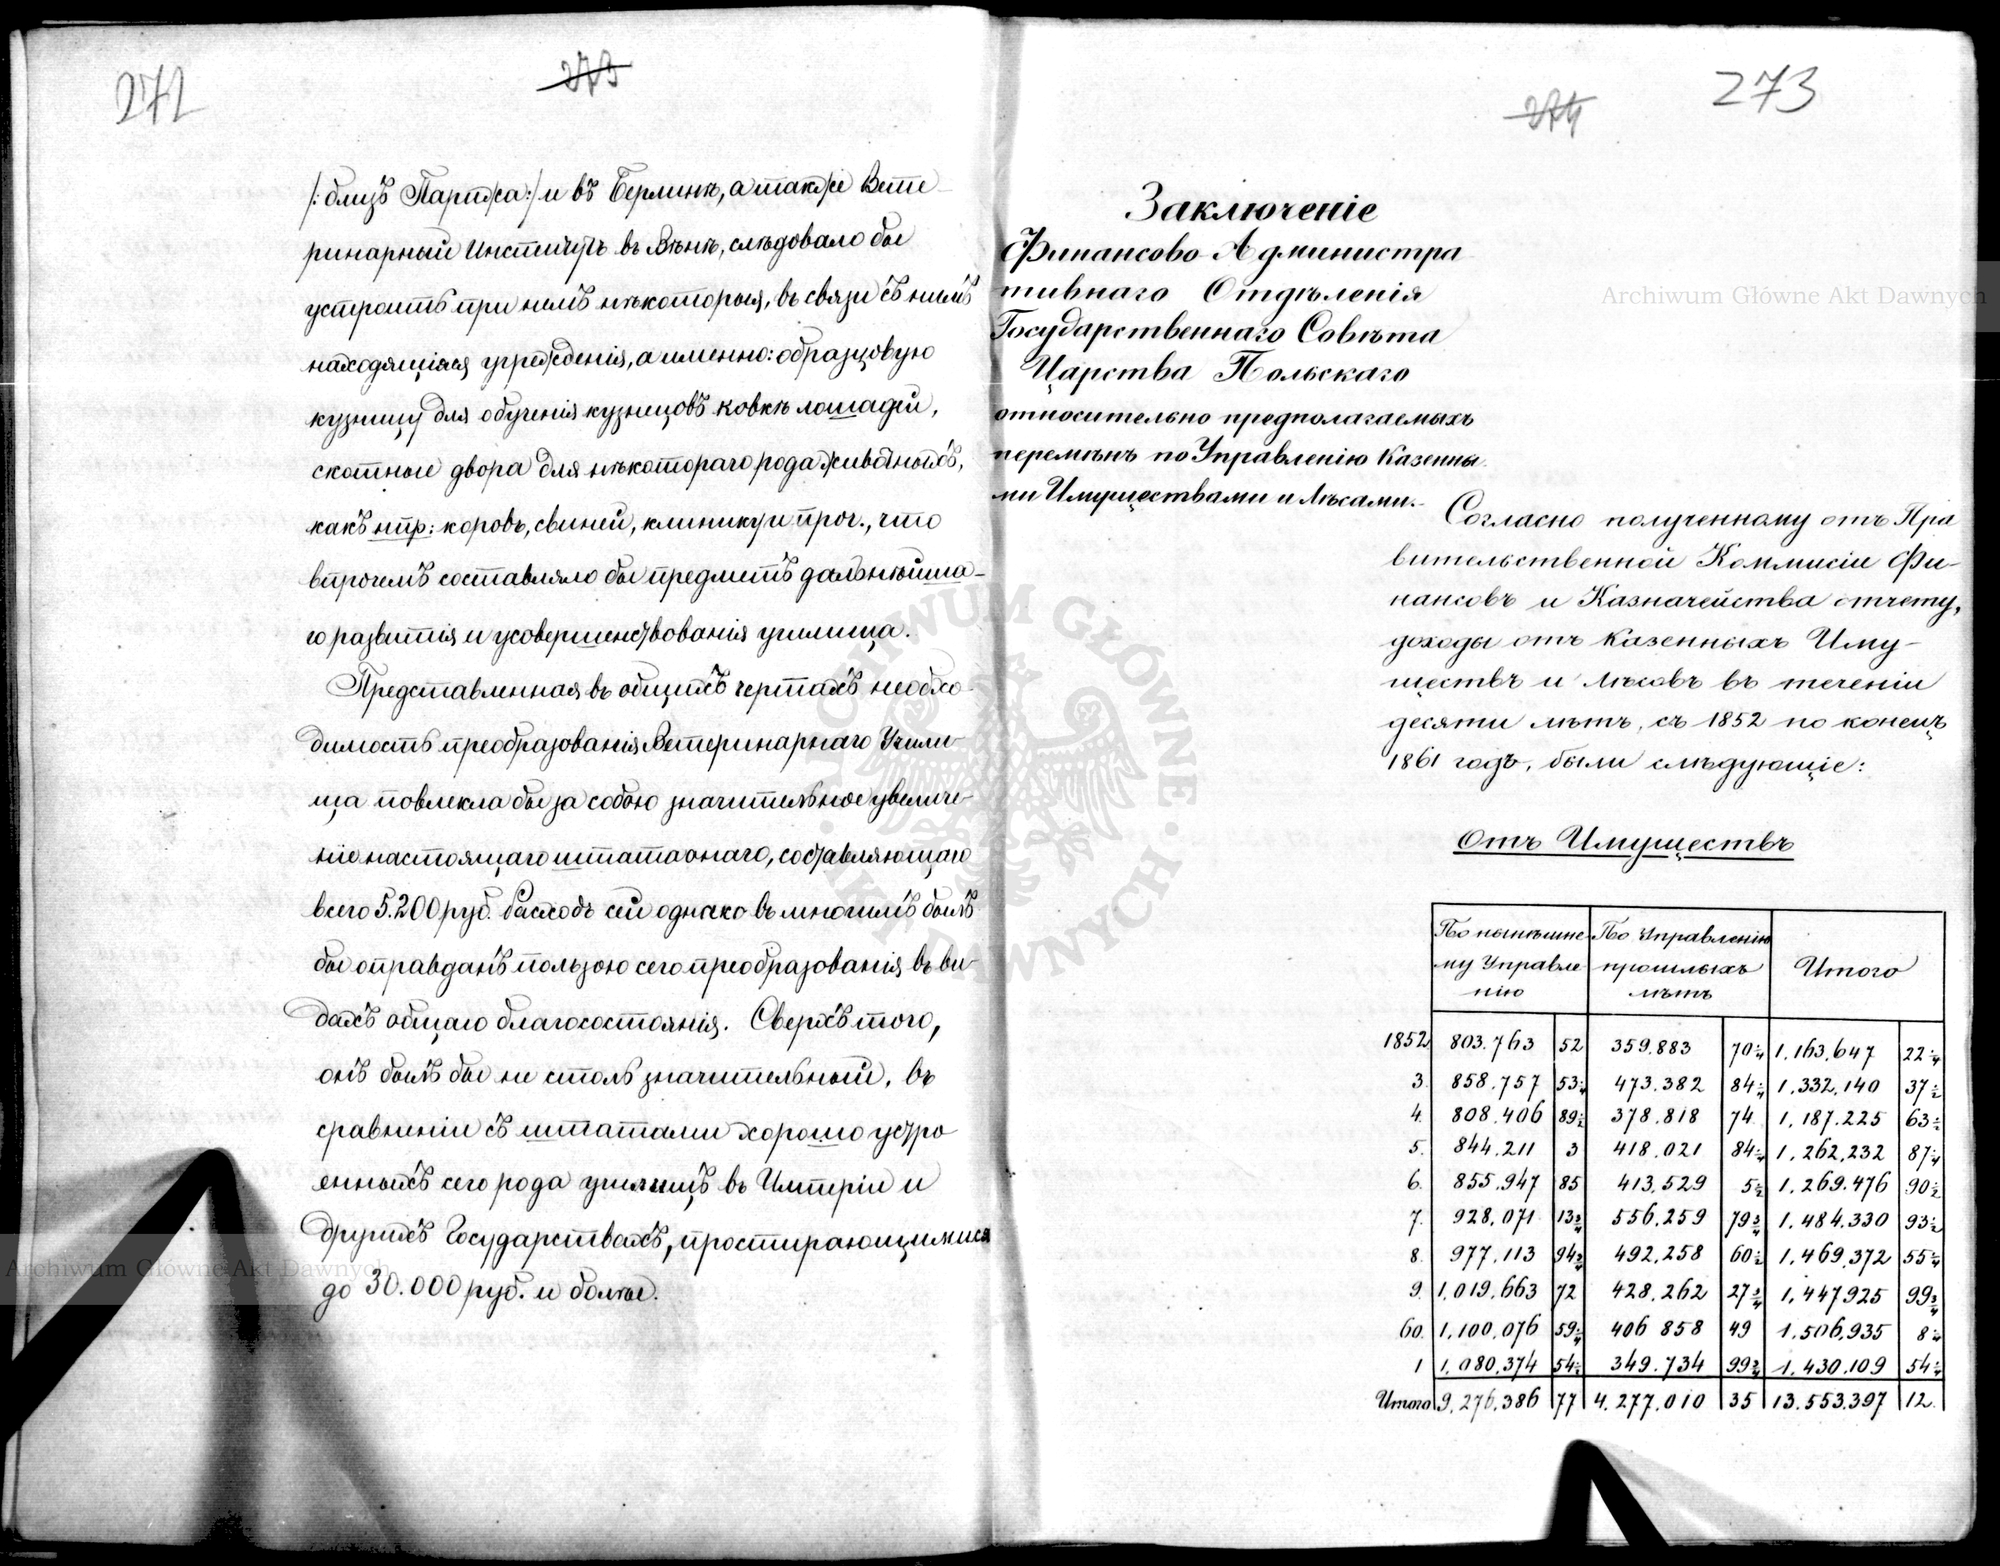 272
273
/: близъ Парижа :/ и въ Берлинѣ, а также Вете-
ринарный Институтъ въ Вѣнѣ, слѣдовало бы
устроить при немъ нѣкоторыя, въ связи съ нимъ
находящіяся учрежденія, а именно: образцовую
кузницу для обученія кузнецовъ ковкѣ лошадей,
скотные двора для нѣкотораго рода животныхъ,
какъ нпр: коровъ, свиней, клинику и проч., что
впрочемъ составляло бы предметъ дальнѣйша-
го развитія и усовершенствованія училища.
Представленная въ общихъ чертахъ необхо-
димость преобразованія Ветеринарнаго Учили-
ща повлекла бы за собою значительное увеличе-
ніе настоящаго штата онаго, составляющаго
всего 5.200 руб. Расходъ сей однако въ многомъ былъ
бы оправданъ пользою сего преобразованія въ ви-
дахъ общаго благосостоянія. Сверхъ того,
онъ былъ бы не столь значительный, въ
сравненіи съ штатами хорошо устро
енныхъ сего рода училищъ въ Имперіи и
другихъ Государствахъ, простирающимися
до 30.000 руб. и болѣе.
274
273
Заключеніе
Финансово-Администра
тивнаго Отдѣленія
Государственнаго Совѣта
Царства Польскаго
относительно предполагаемыхъ
перемѣнъ по Управленію Казенны
ми Имуществами и Лѣсами.
Согласно полученному отъ Пра
вительственной Коммисіи Фи-
нансовъ и Казначейства отчету,
доходы отъ Казенныхъ Иму-
ществъ и Лѣсовъ въ теченіи
десяти лѣтъ, съ 1852 по конецъ
1861 годъ, были слѣдующіе:
Отъ Имуществъ
По нынѣшне По Управленію
му Управле прошлыхъ Итого
нію лѣтъ
1852 803.763 52 359.883 70¼ 1,163,647 22¼
3. 858.757 53¼ 473.382 84¼ 1.332,140 37½
4. 808.406 89½ 378.818 74 1,187.225 63½
5. 844.211 3 418.021 84¼ 1,262,232 87¼
6. 855.947 85 413,529 5½ 1,269.476 90½
7. 928,071 13¾ 556,259 79¾ 1,484.330 93½
8. 977,113 94¾ 492,258 60½ 1,469,372 55¼
9. 1,019,663 72 428,262 27¾ 1,447925 99¾
60. 1,100,076 59¼ 406 858 49 1,506,935 8¼
1 1,080,374 54½ 349.734 99¾ 1.430.109 54¼
Итого 9,276,386 77 4.277,010 35 13.553.397 12.
Archiwum Główne Akt Dawnych
Archiwum Główne Akt Dawnych
ARCHIWUM GŁÓWNE · AKT DAWNYCH ·